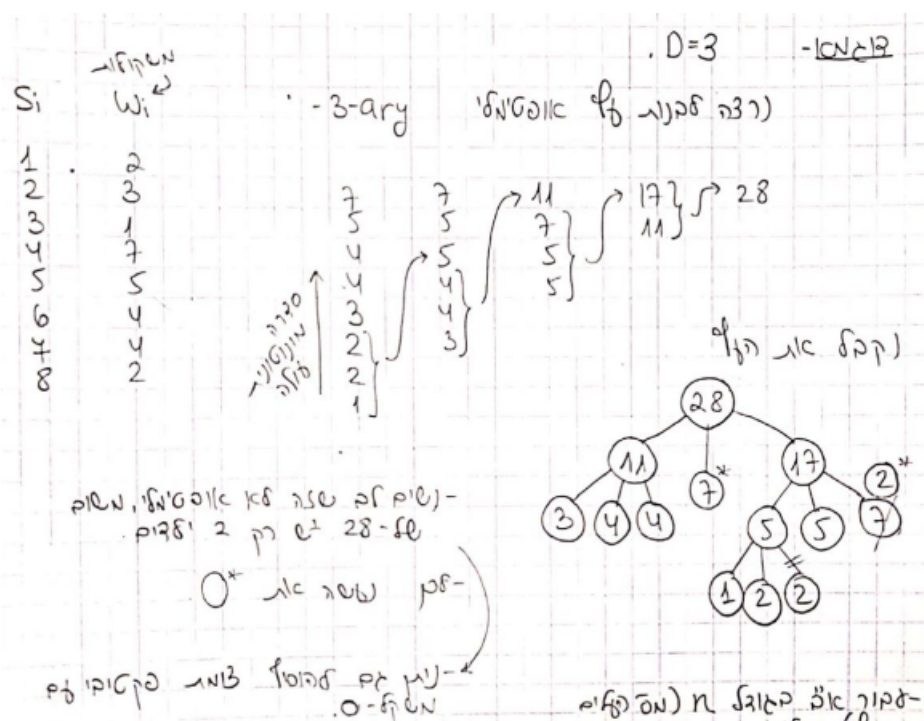 דוגמא- D=3.
נרצה לבנות עץ אופטימלי 3-ary-
משקולות
Si Wi
1 2
2 3
3 1
4 7
5 5
6 4
7 4
8 2
סדרה
מונוטונית
עולה
7 7 11 17 28
5 5 7 11
4 5 5
4 4 5
3 4
2 3
2
1
נקבל את העץ
28
11 7* 17 2*
3 4 4 5 5 7
1 2 2
-נשים לב שזה לא אופטימלי, משום
שלש-28 יש רק 2 ילדים.
-לכן נעשה את *
-ניתן גם להוסיף צומת פקטיבי עם
משקל-0.
-עבור א"ב בגודל n (מס' העלים